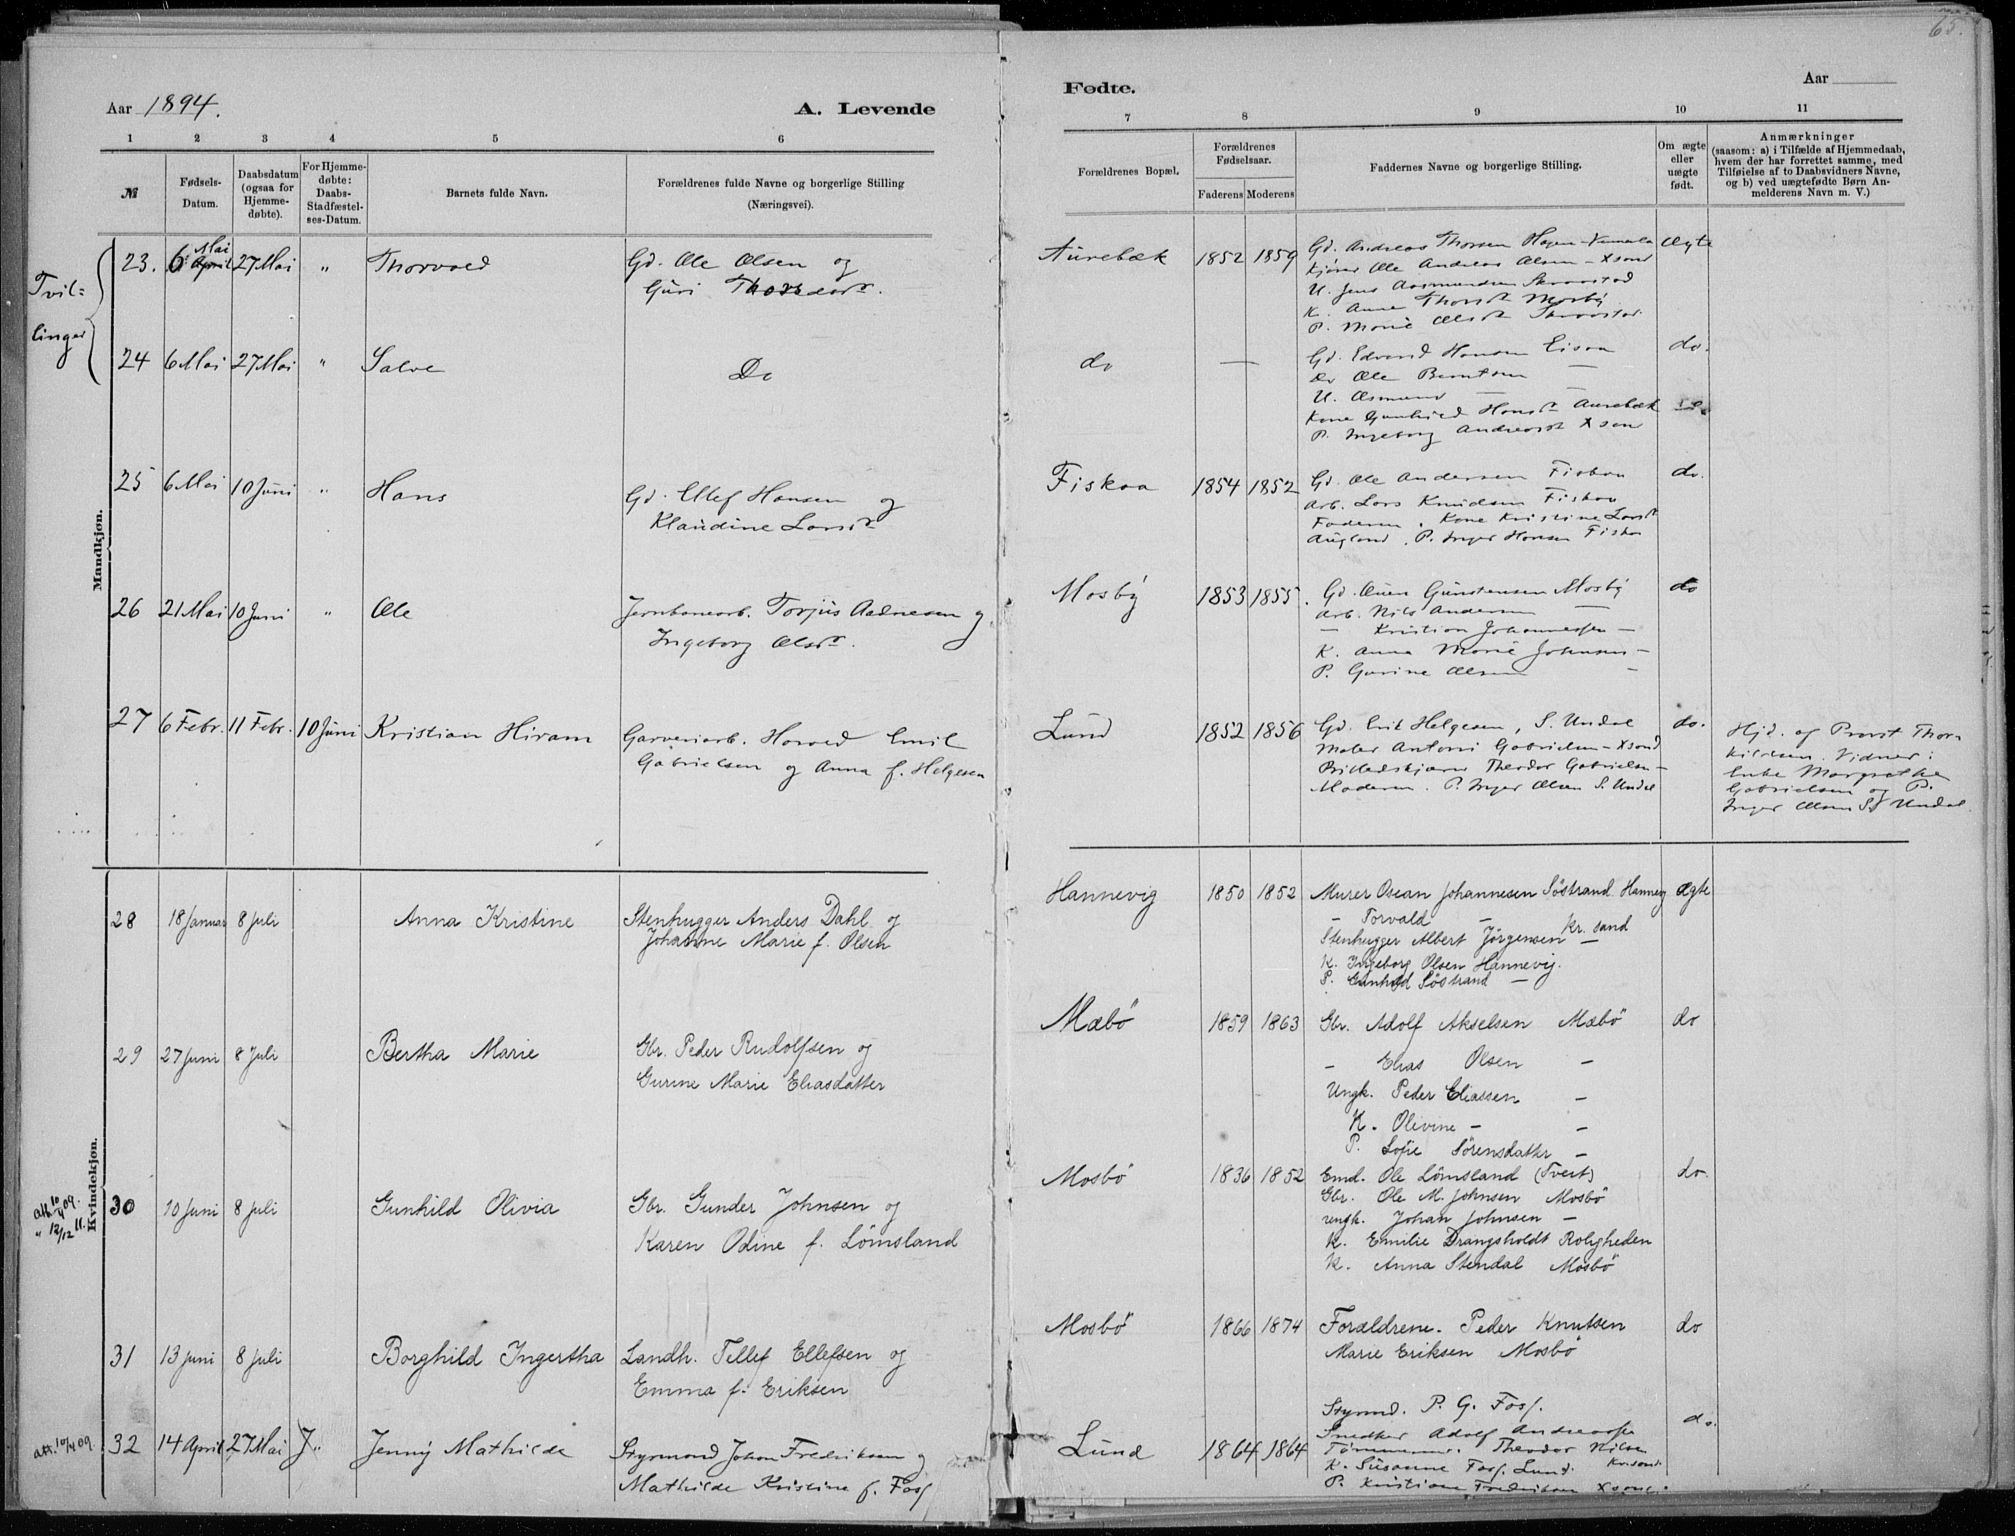 65.
Aar 1894.
A. Levende
Fødte.
Aar
1 2 3 4 5 6
7 8 9 10 11
№
Fødsels-
Datum.
Daabsdatum
(ogsaa for
Hjemme-
døbte).
For Hjemme-
døbte:
Daabs-
Stadfæstel-
ses-Datum.
Barnets fulde Navn.
Forældrenes fulde Navne og borgerlige Stilling
(Næringsvei).
Forældrenes Bopæl.
Forældrenes
Fødselsaar.
Faderens Moderens
Faddernes Navne og borgerlige Stilling.
Om ægte
eller
uægte
født.
Anmærkninger
(saasom: a) i Tilfælde af Hjemmedaab,
hvem der har forrettet samme, med
Tilføielse af to Daabsvidners Navne,
og b) ved uægtefødte Børn An-
melderens Navn m. V.)
Mandkjøn.
Tvil-
linger
23. 6 April Mai 27 Mai " Thorvald
Gd. Ole Olsen og
Guri Thorsdt.
Aurebæk 1852 1859
Gd. Andreas Thorsen Hagen
Ole Andreas Olsen - Xsand
U. Jens Aasmundsen
K. Anne Thorsdt Mosby
P. Marie Olsdt
Ægte
24 6 Mai 27 Mai " Salve
Do
do —
Gd. Edvard Hansen Eisaa
Do Ole Berntsen —
U. Osmund —
Kone Gunhild Hansdt Aurebæk
P. Ingeborg Andreasdt Xsand
do.
25 6 Mai 10 Juni " Hans
Gd. Ellef Hansen og
Klaudine Larsdt
Fiskaa 1854 1852
Gd. Ole Andersen Fiskaa
Arb. Lars Knudsen Fiskaa
Faderen. Kone Kristine Larsdt
Augland. P. Inger Hansen Fiskaa
do.
26 21 Mai 10 Juni " Ole
Jernbanearb. Torjus Aadnesen og
Ingeborg Olsdt.
Mosby 1853 1855.
Gd. Ouen Gunstensen Mosby
Arb. Nils Andersen —
— Kristian Johannessen —
K. Anna Marie Johnsen —
P. Gurine Olsen —
do
27 6 Febr. 11 Febr. 10 Juni Kristian Hiram
Garveriarb. Harald Emil
Gabrielsen og Anna f. Helgesen
Lund 1852 1856
Gd. Erik Helgesen, S. Undal
Maler Antoni Gabrielsen - Xsand
Theodor Gabrielsen -
Moderen. P. Inger Olsen S. Undal
do.
Hjd. af Provst Thor-
kildsen. Vidner:
Enke Margrethe
Gabrielsen og P.
Inger Olsen S. Undal
Kvindekjøn.
28 18 Januar 8 Juli Anna Kristine
Stenhugger Anders Dahl og
Johanne Marie f. Olsen
Hannevig 1850 1852
Murer Oscar Johannesen Søstrand Hannevig
— Torvald — Kr.sand
Stenhugger Albert Jørgensen —
K. Ingeborg Olsen Hannevig.
P. Gunhild Søstrand —
Ægte
29 27 Juni 8 Juli Bertha Marie
Gbr. Peder Rudolfsen og
Gurine Marie Eliasdatter
Mæbø 1859 1863
Gbr. Adolf Akselsen Mæbø
— Elias Olsen —
Ungk. Peder Eliassen —
K. Olivine — —
P. Sofie Sørensdatter —
do
att. 10/4 09.
" 12/12 11.
30 10 Juni 8 Juli Gunhild Olivia
Gbr. Gunder Johnsen og
Karen Odine f. Lømsland
Mosbø 1836 1852
Emd. Ole Lømsland (Tveit)
Gbr. Ole M. Johnsen Mosbø
ungk. Johan Johnsen —
K. Emilie Drangsholdt Roligheden
K. Anna Stendal Mosbø
do
31 13 Juni 8 Juli Borghild Ingertha
Landh. Tellef Ellefsen og
Emma f. Eriksen
Mosbø 1866 1874
Forældrene. Peder Knutsen
Marie Eriksen Mosbø
do
att. 10/4 09
32 14 April 27 Mai J. Jenny Mathilde
Styrmand Johan Fredriksen og
Mathilde Kristine f. Foss
Lund 1864 1864
Styrmd. P. G. Foss.
Snedker Adolf Andreassen
Tømmermd. Theodor Nilsen
K. Susanne Foss. Lund. Krsand
P. Kristiane Fredriksen Xsand.
do.